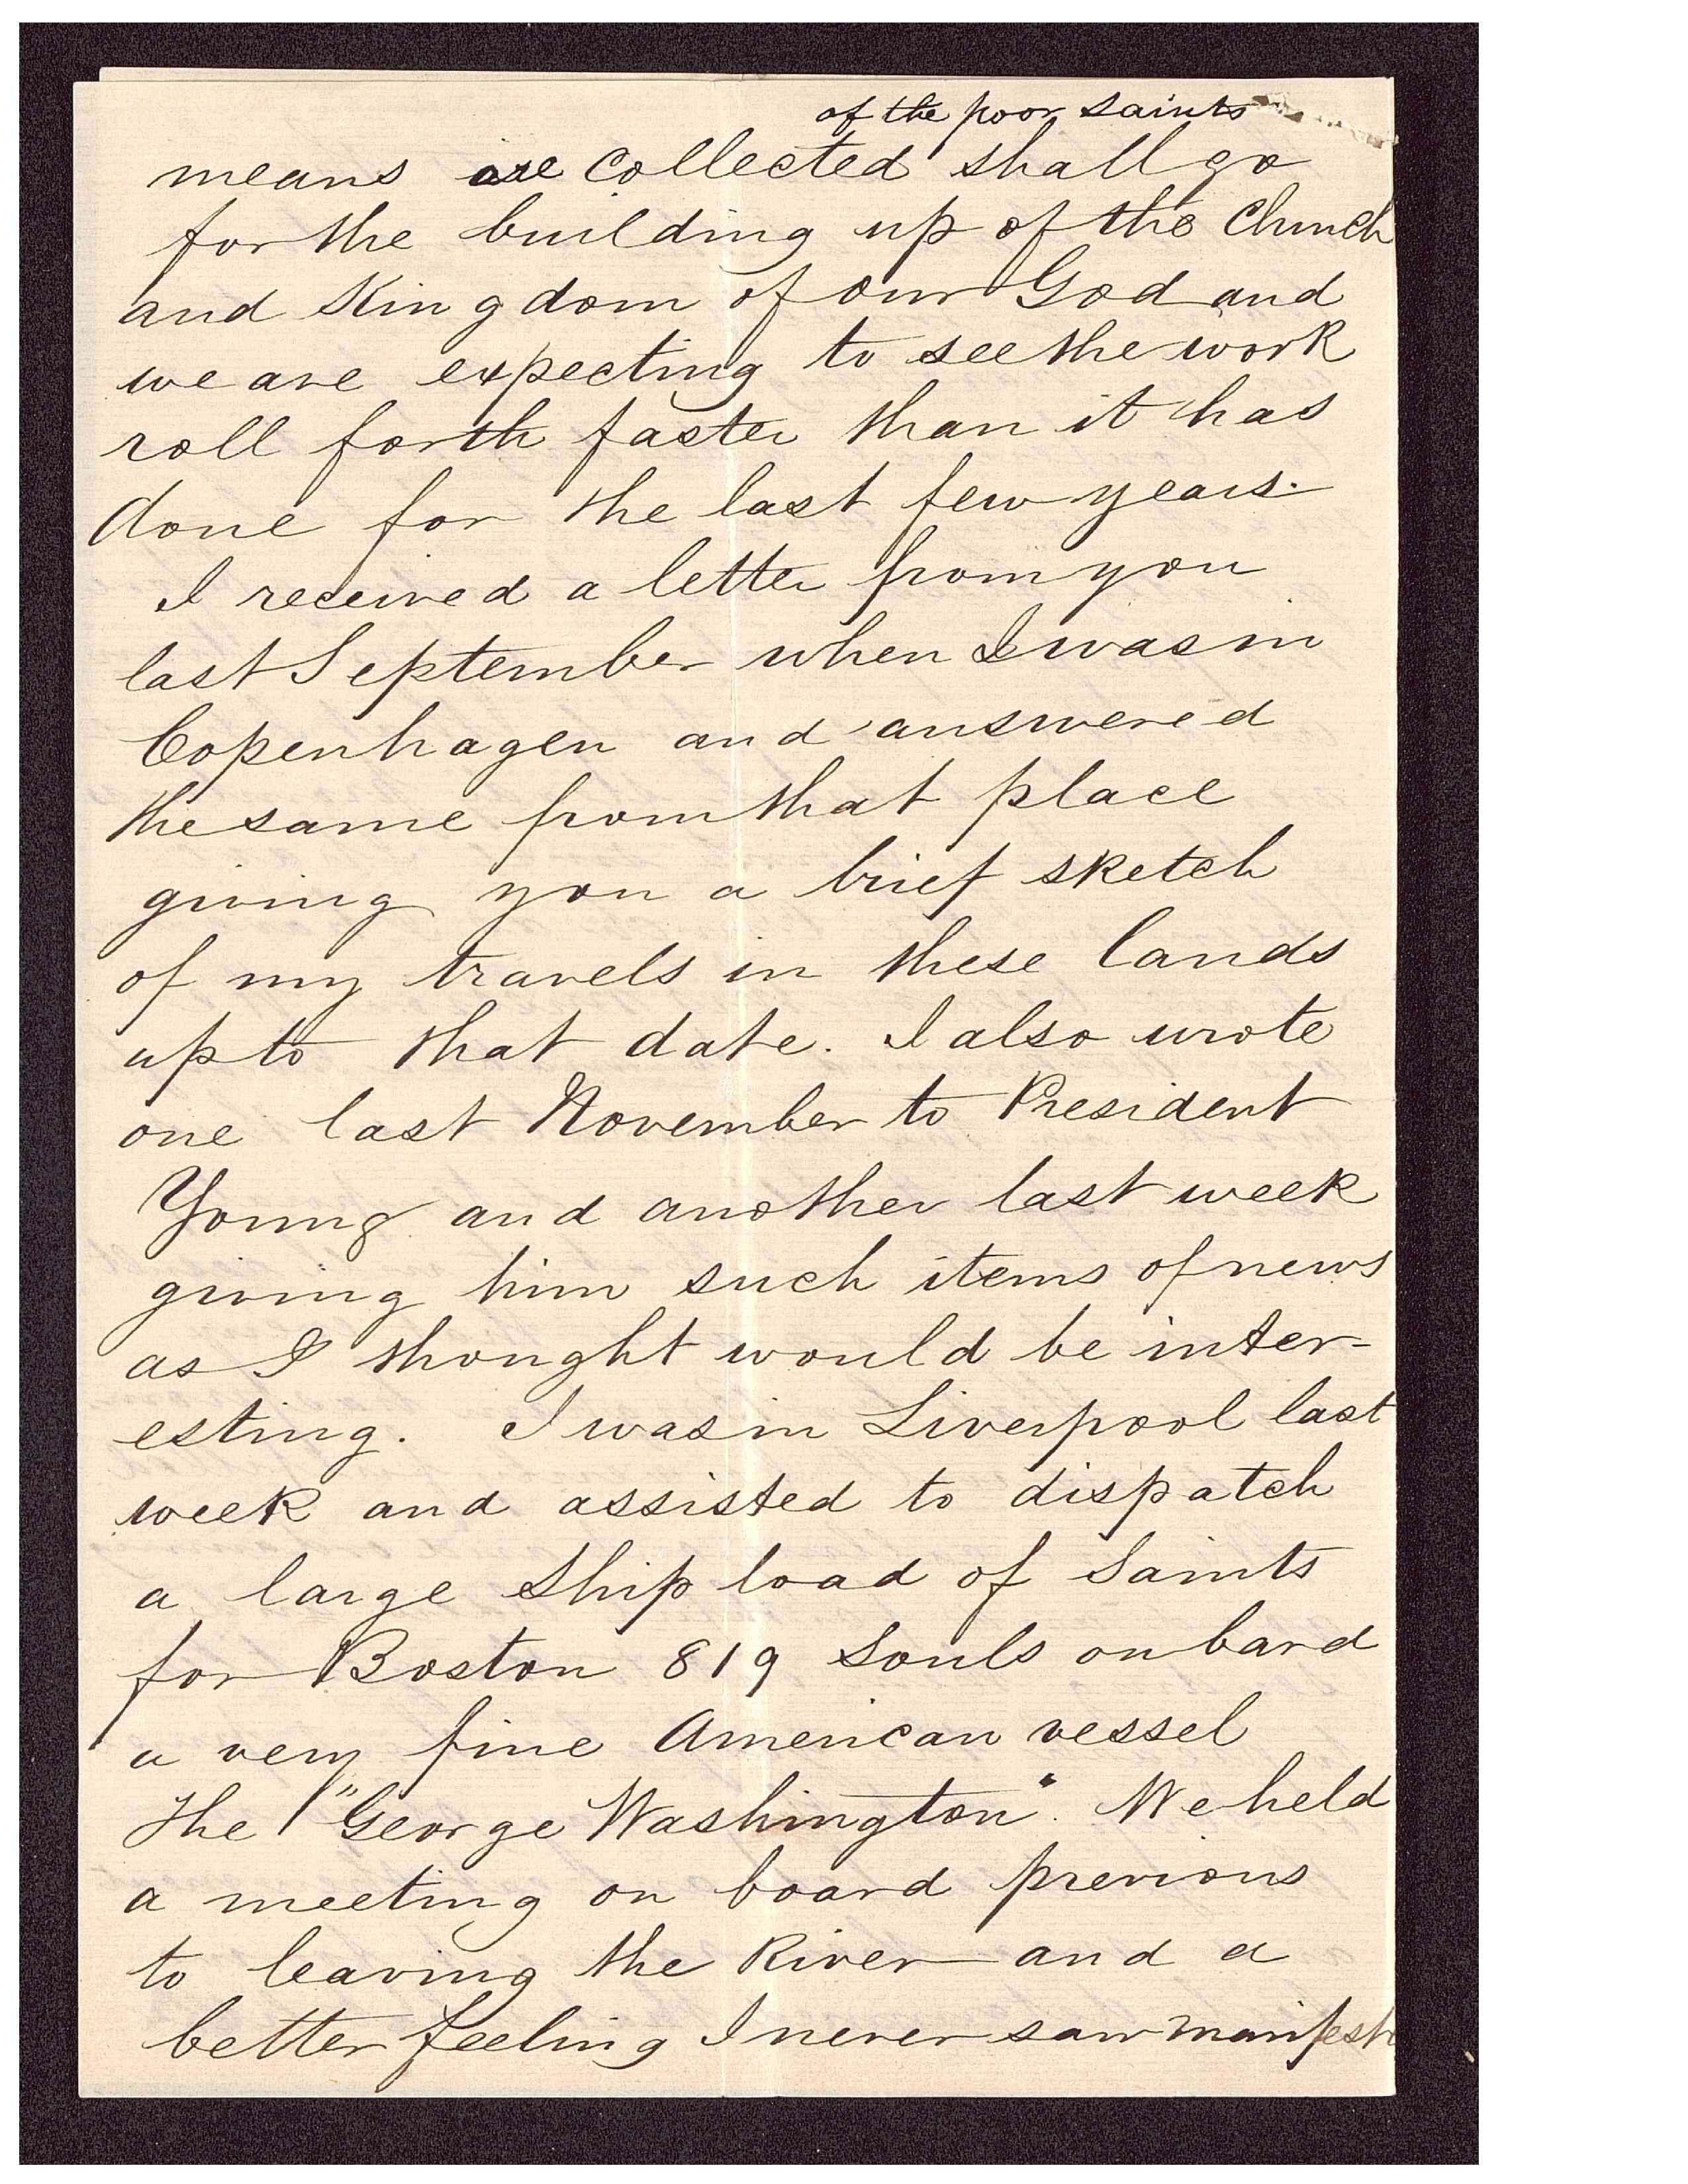 of the poor saints
means are collected shall go
for the building up of the Church
and Kingdom of our God and
we are expecting to see the work
roll forth faster than it has
done for the last few years.
I received a letter from you
last September when I was in
Copenhagen and answered
the same from that place
giving you a brief sketch
of my travels in these lands
up to that date. I also wrote
one last November to President
Young and another last week
giving him such items of news
as I thought would be inter-
esting. I was in Liverpool last
week and assisted to dispatch
a large Ship load of Saints
for Boston 819 Souls on bard
a very fine American vessel
The "George Washington". We held
a meeting on board previous
to leaving the River and a
better feeling I never saw manifest